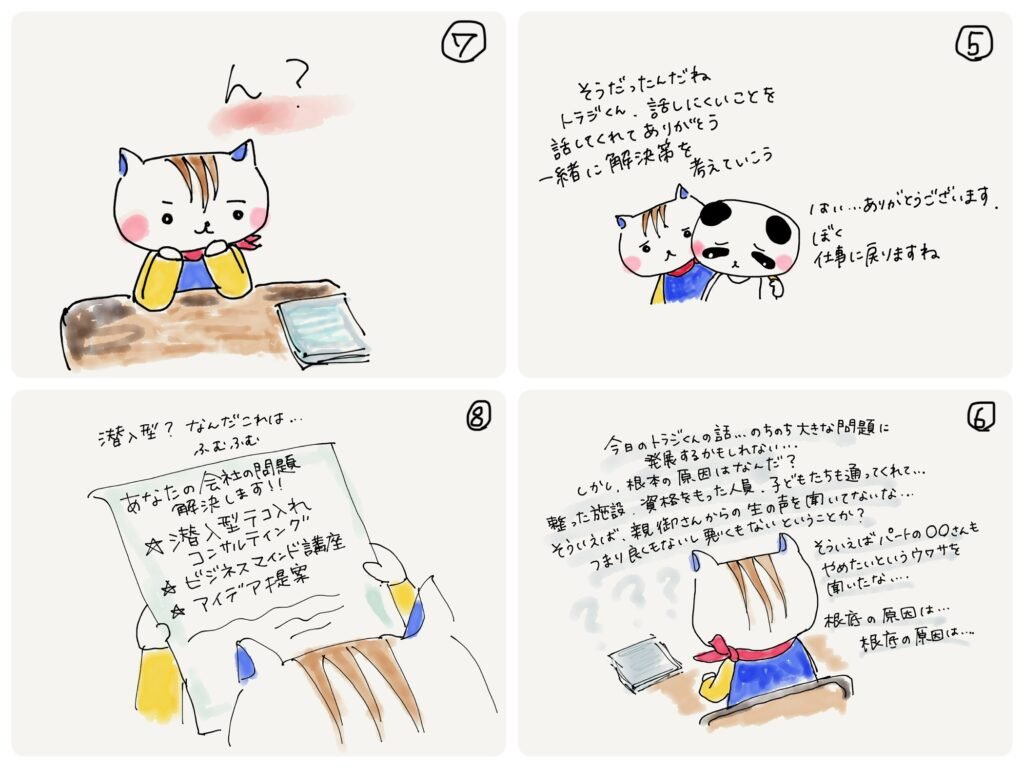 ⑤
そうだったんだね
トラジくん、話しにくいことを
話してくれてありがとう
一緒に解決策を
考えていこう
はい…ありがとうございます.
ぼく
仕事に戻りますね
⑥
今日のトラジくんの話…のちのち大きな問題に
発展するかもしれない…
しかし、根本の原因はなんだ?
整った施設、資格をもった人員、子どもたちも通ってくれて…
そういえば、親御さんからの生の声を聞いてないな…
つまり良くもないし悪くもないということか?
そういえばパートの〇〇さんも
やめたいというウワサを
聞いたな…
???
根底の原因は…
根底の原因は…
⑦
ん?
⑧
潜入型? なんだこれは…
ふむふむ
あなたの会社の問題
解決します!!
☆潜入型テコ入れ
コンサルティング
☆ビジネスマインド講座
☆アイデア提案